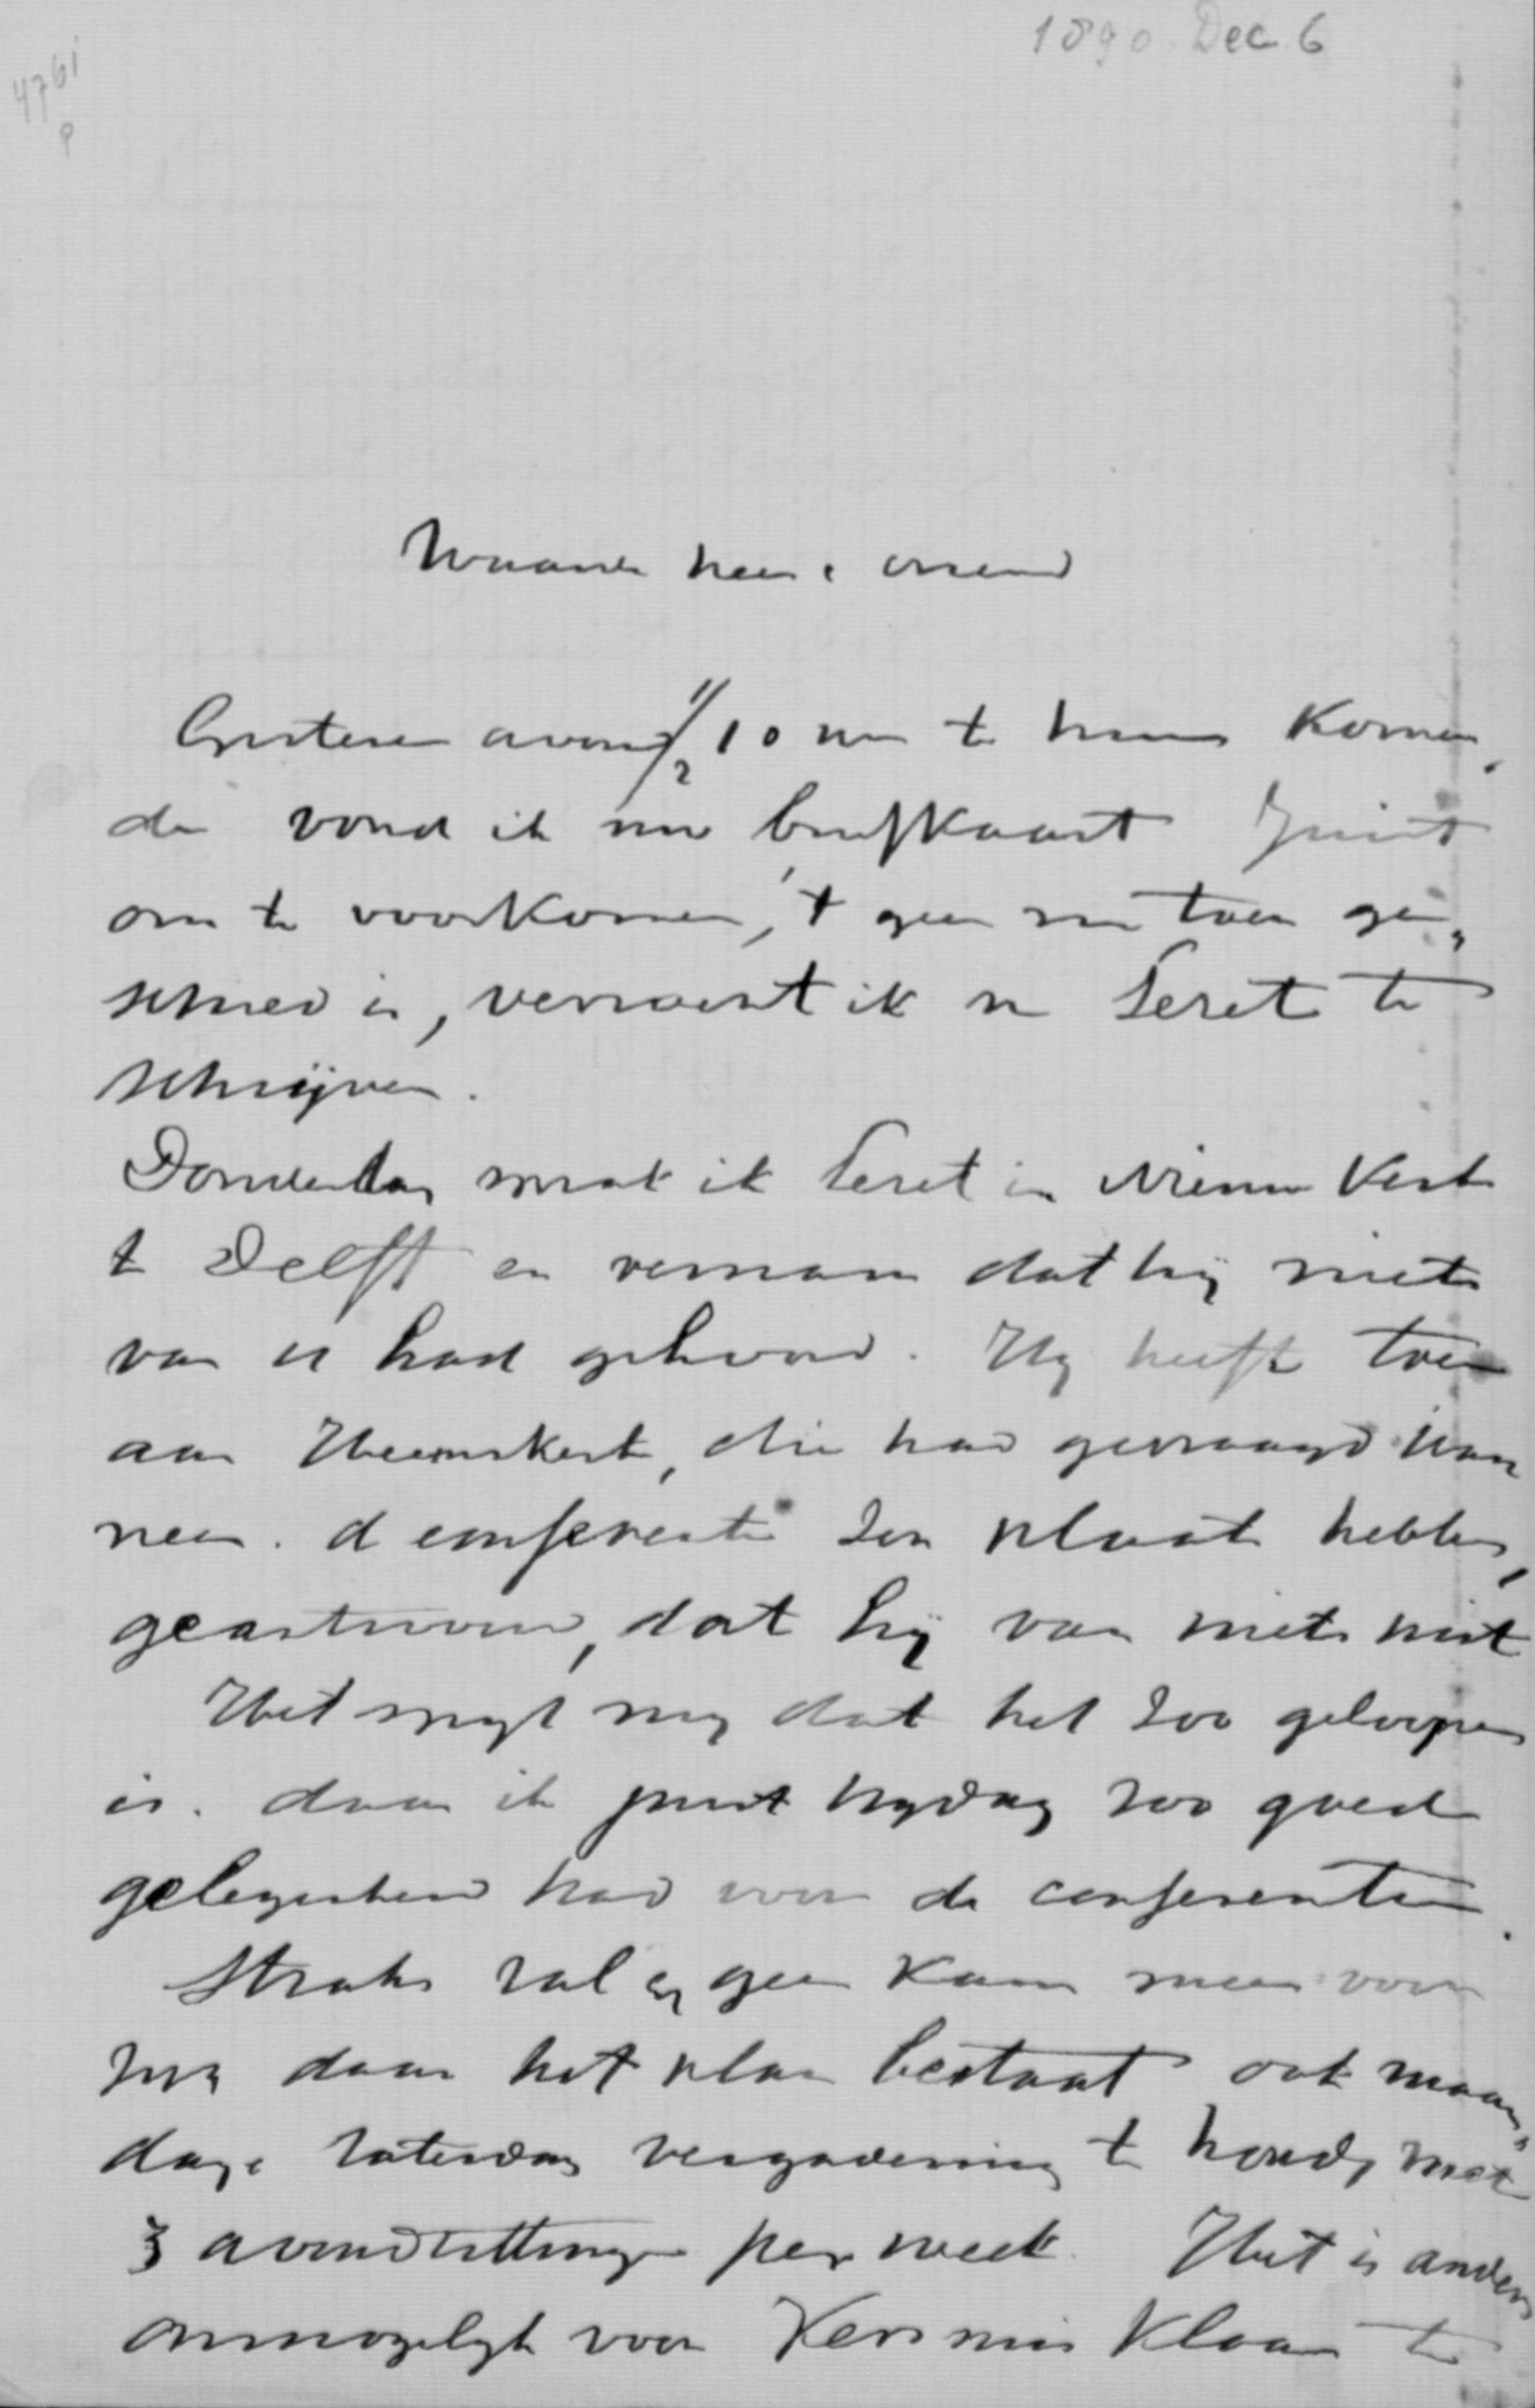 1890 Dec 6
4761
Waarde heer & vriend
Gisteren avond 1/2 10 uur te huis komen,
de vond ik uw briefkaart Juist
om te voorkomen, 't geen nu toen ge,
schied is, verzocht ik u Seret te
schrijven.
Donderdag sprak ik Seret in Nieuw Kerk
te Delft en vernam dat hij niets
van u had gehoord. Hij heeft toen
aan Heemskerk, die had gevraagd wan
neer de conferentie zou plaats hebben,
geantwoord, dat hij van niets wist
Het spijt mij dat het zoo geloopen
is. daar ik juist vrijdag zoo goed
gelegenheid had voor de conferentie.
Straks zal er geen kans meer voor
zijn daar het plan bestaat ook maan,
dag & zaterdag vergadering te houden met
3 avondzittingen per week. Het is anders
onmogelijk voor Kersmis klaar te